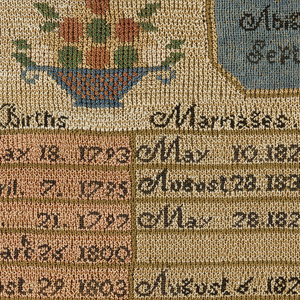 Births Marriages
18. 1793 May 10.182
7. 1795 August 28.183
21. 1797 May 28.182
28 1800
29. 1803 August 6.182